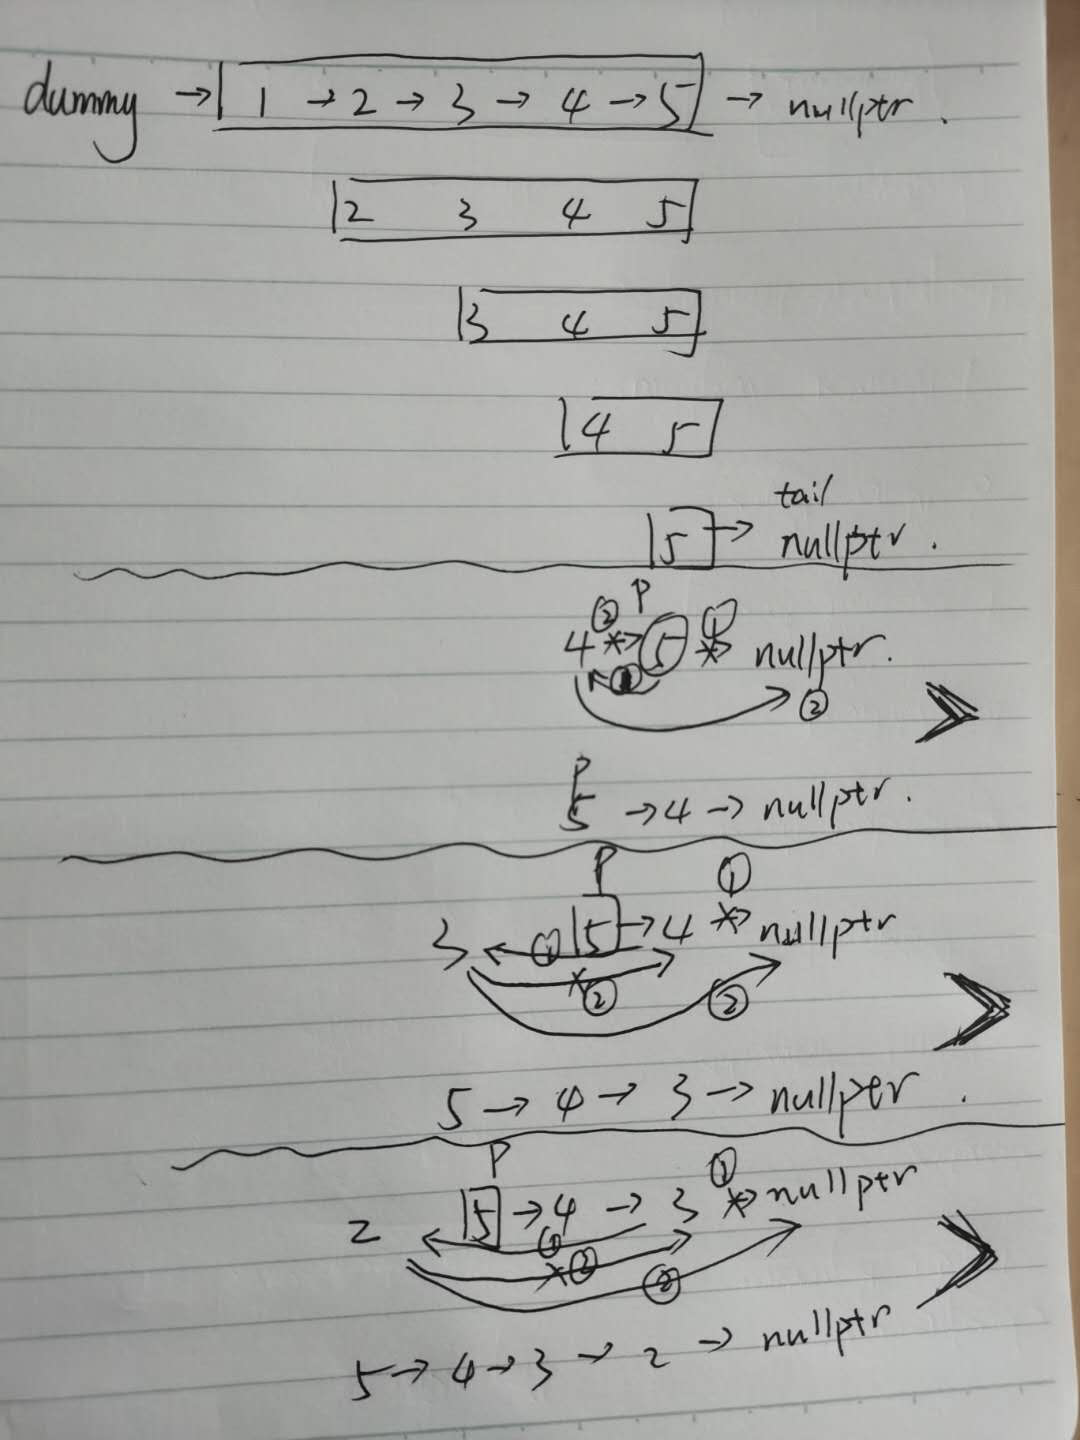 dummy → 1 → 2 → 3 → 4 → 5 → nullptr .
2 3 4 5
3 4 5
4 5
tail
5 → nullptr .
② P ①
4 → 5 → nullptr.
① ②
P
5 → 4 → nullptr .
P ①
3 5 → 4 → nullptr
①
② ②
5 → 4 → 3 → nullptr .
P ①
2 5 → 4 → 3 → nullptr
①
② ②
5 → 4 → 3 → 2 → nullptr